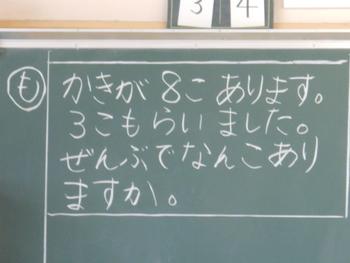 3 4
も
かきが 8こ あります。
3こもらい ました。
ぜんぶでなんこあり
ますか。